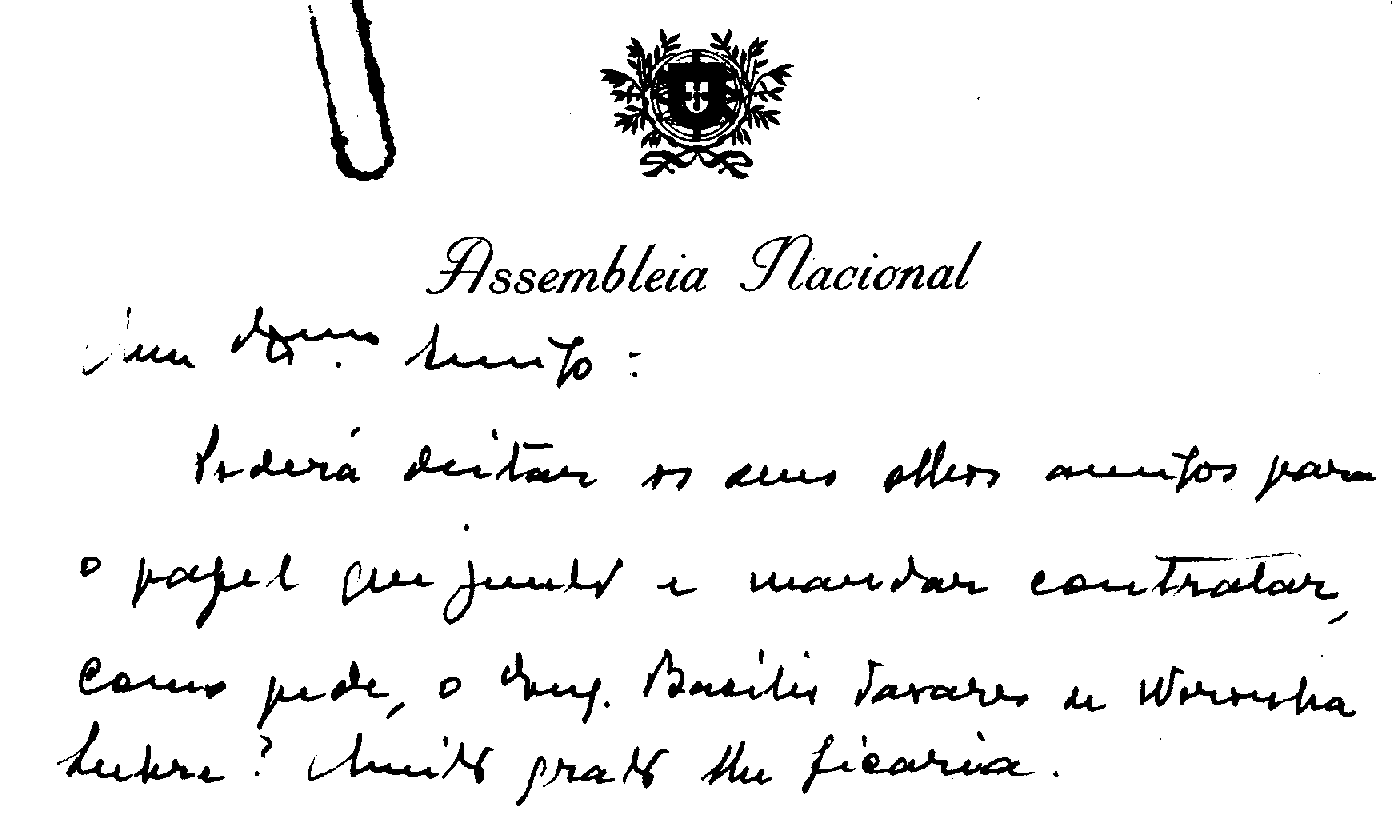 Assembleia Nacional
Meu Exmo. Amigo :
Poderá deitar os seus olhos amigos para
o papel que junto e mandar contratar,
como pede, o Eng. Basílio Tavares de Noronha
? Muito grato lhe ficaria.